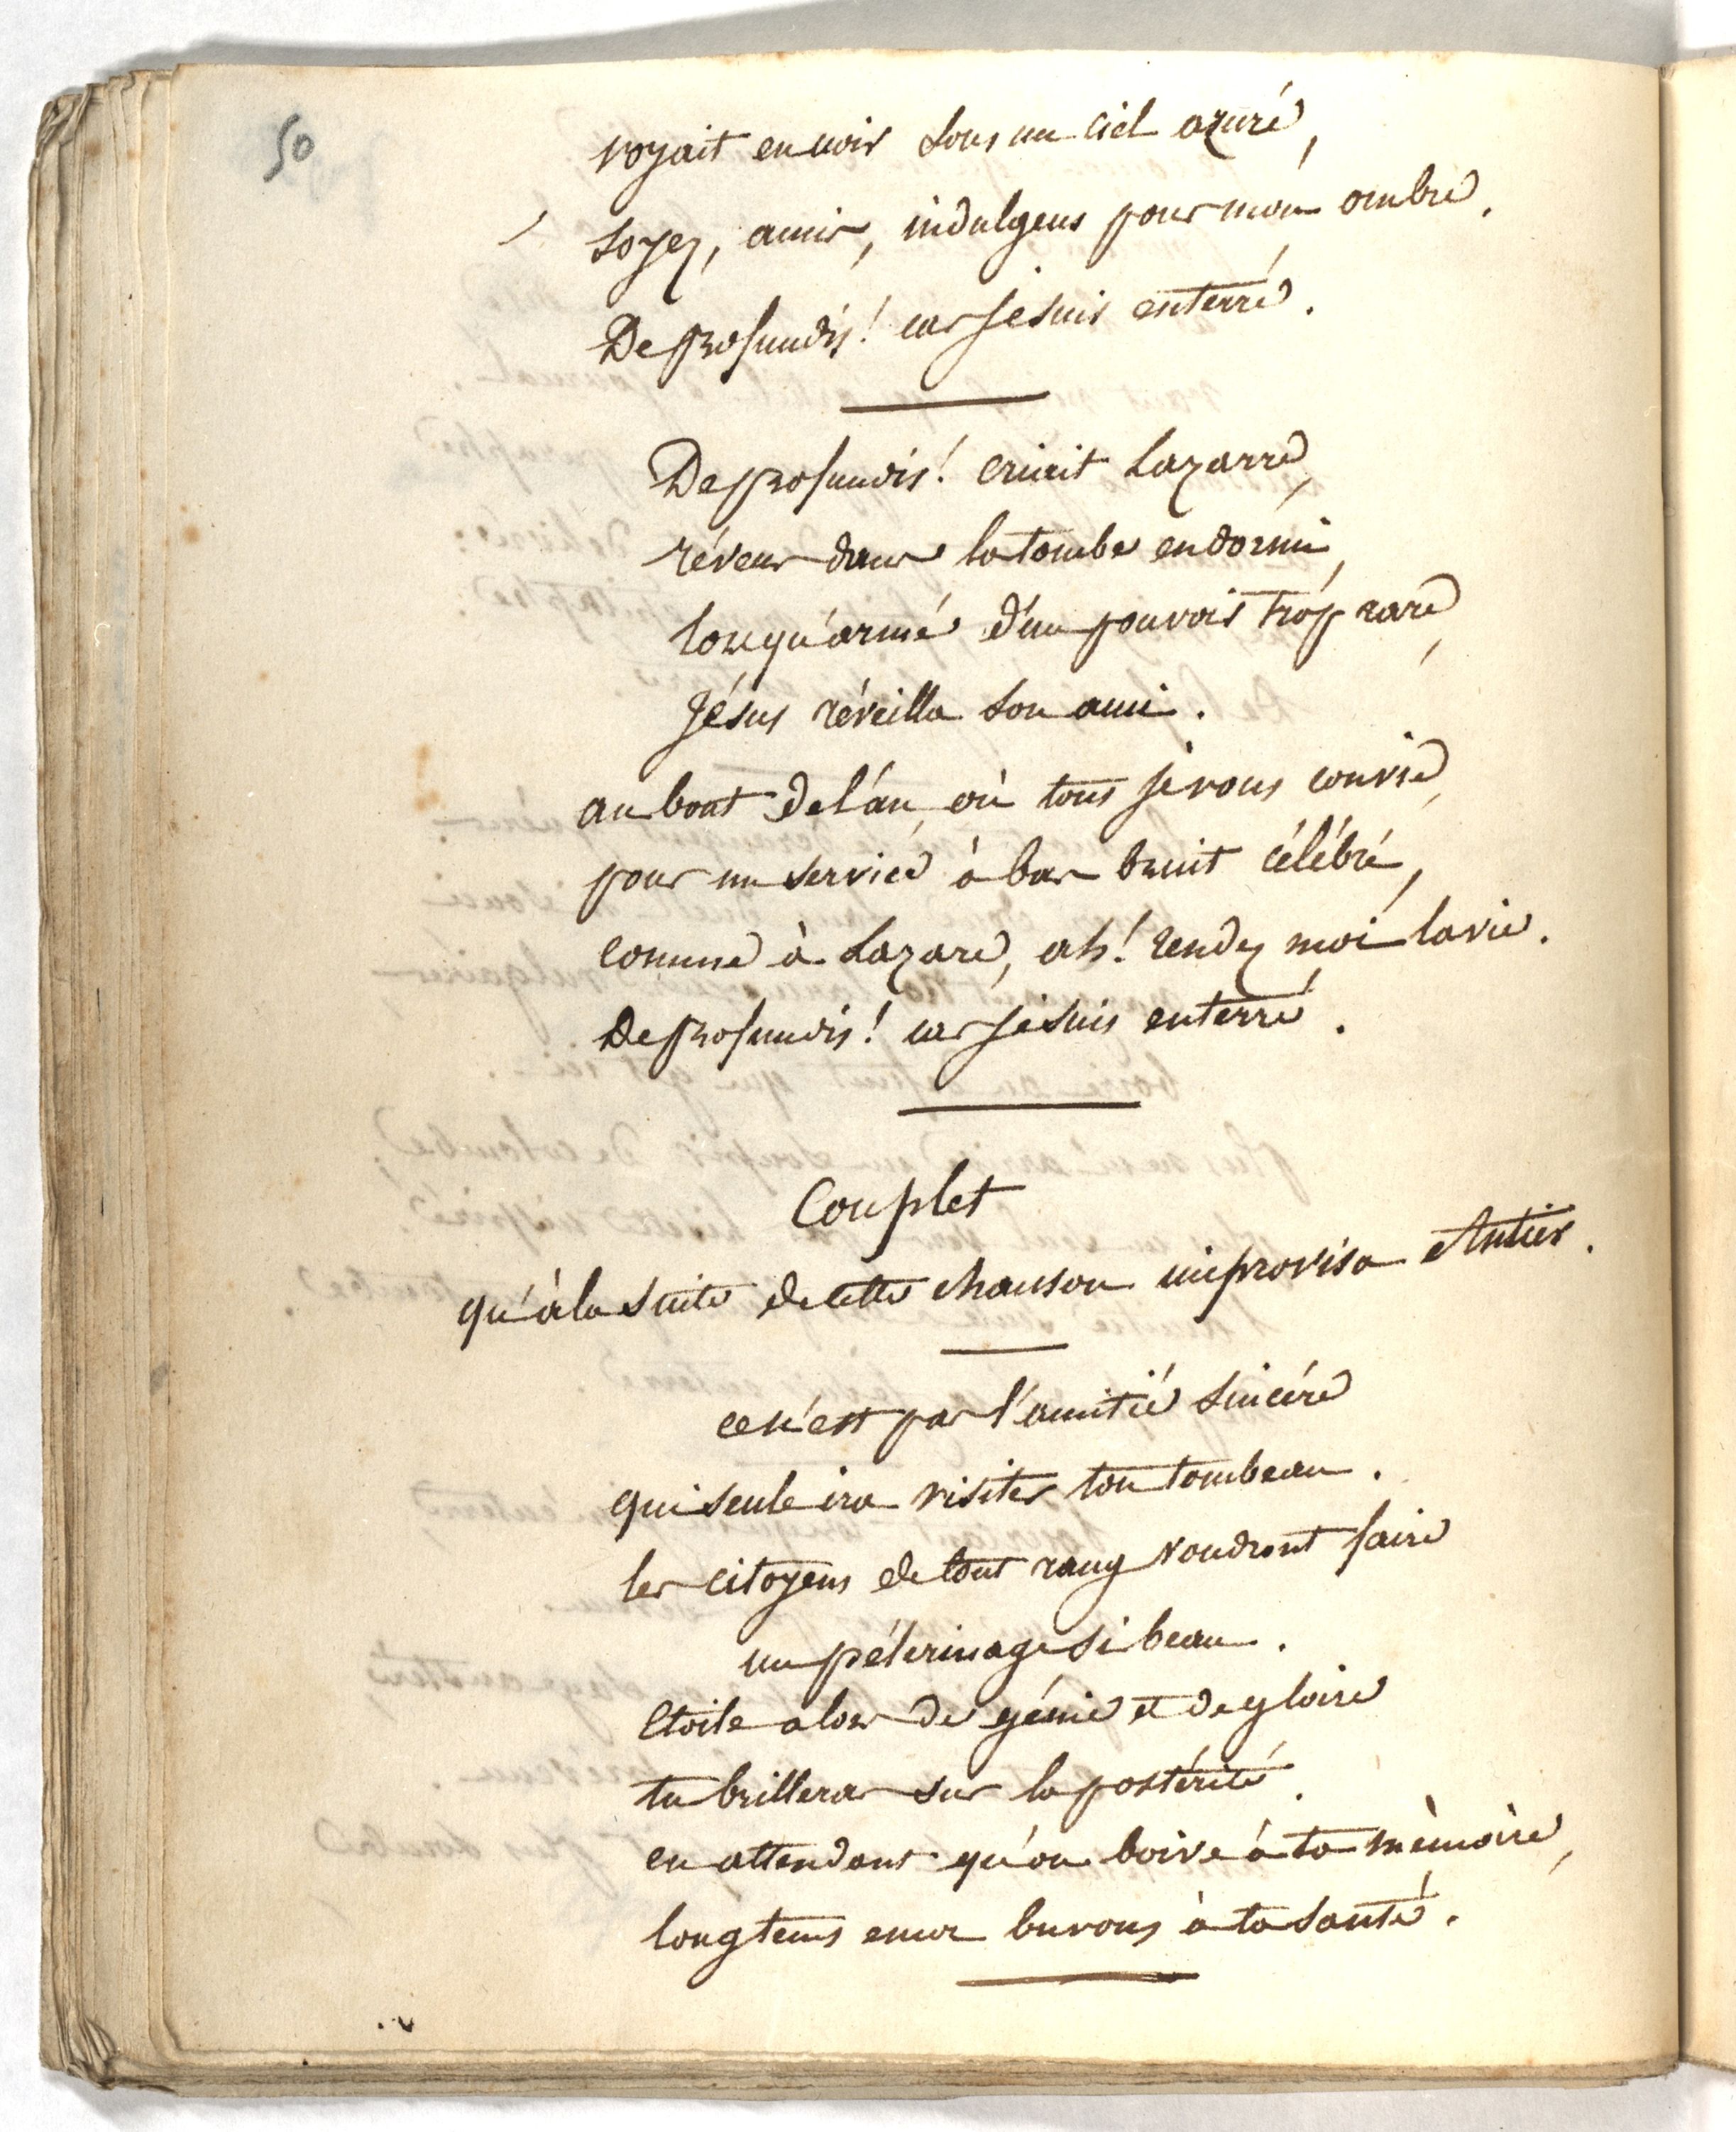 50
voyait en noir sous un ciel azuré,
soyez, amis, indulgens pour mon ombre.
De profundis! car je suis enterré.
De profundis! criait Lazarre,
rêveur dans la tombe endormi,
lorsqu'armé d'un pouvoir trop rare,
Jésus réveilla son ami.
au bout de l'an, où tous je vous convie,
pour un service à bas bruit célébré,
comme à Lazare, ah! rendez moi la vie.
De profundis! car je suis enterré.
Couplet
qu'à la suite de cette chanson improvisa Antier.
ce n'est pas l'amitié sincère
qui seule ira visiter ton tombeau.
les citoyens de tout rang voudront faire
un pélerinage si beau.
Etoile alors de génie et de gloire
tu brilleras sur la postérité.
en attendant qu'on boive à ta mémoire,
longtems encor buvons à ta santé.